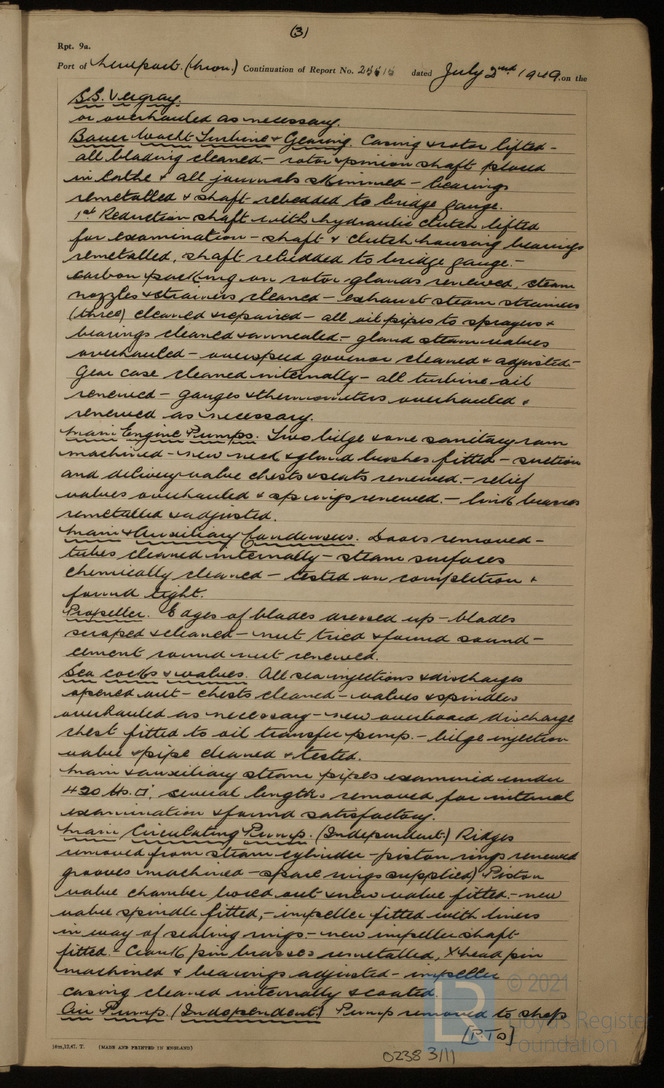 (3)
Rpt. 9a.
Port of Newport. (Mon.) Continuation of Report No. dated July 2nd 1949. on the
S.S. Vergray.
or overhauled as necessary.
Bauer Wacht Turbine & Gearing. Casing & rotor lifted -
all blading cleaned - rotor & pinion shaft placed
in lathe & all journals skimmed - bearings
remetalled & shaft rebedded to bridge gauge.
1st Reduction shaft with hydraulic clutch lifted
for examination - shaft & clutch housing bearings
remetalled, shaft rebedded to bridge gauge. -
carbon packing on rotor glands renewed, steam
nozzles & strainers cleaned - exhaust steam strainers
(three) cleaned & repaired - all oil pipes to sprayers &
bearings cleaned & annealed - gland steam valves
overhauled - overspeed governor cleaned & adjusted -
Gear case cleaned internally - all turbine oil
renewed - gauges & thermometers overhauled &
renewed as necessary.
Main Engine Pumps. Two bilge & one sanitary ram
machined - new neck & gland bushes fitted - suction
and delivery valve chests & seats renewed. - relief
valves overhauled & springs renewed. - link brasses
remetalled & adjusted.
Main & Auxiliary Condensers. Doors removed -
tubes cleaned internally - steam surfaces
chemically cleaned - tested on completion &
found tight.
Propeller. Edges of blades dressed up - blades
scraped & cleaned - nut tried & found sound -
cement round nut renewed.
Sea cocks & valves. All sea injections & discharges
opened out - chests cleaned - valves & spindles
overhauled as necessary - new overboard discharge
chest fitted to oil transfer pump. - bilge injection
valve & pipe cleaned & tested.
Main & auxiliary steam pipes examined under
420 lbs. □", several lengths removed for internal
examination & found satisfactory.
Main Circulating Pump. (Independent.) Ridges
removed from steam cylinder - piston rings renewed
grooves machined - spare rings supplied, Piston
valve chamber bored out & new valve fitted. - new
valve spindle fitted, - impeller fitted with liners
in way of sealing rings - new impeller shaft
fitted - Crank pin brasses remetalled, X head pin
machined & bearings adjusted - impeller
casing cleaned internally & coated.
Air Pump. (Independent.) Pump removed to shop
[P.T.O]
10m,12,47. T. (MADE AND PRINTED IN ENGLAND)
0238 3/11
© 2021
Lloyd's Register
Foundation